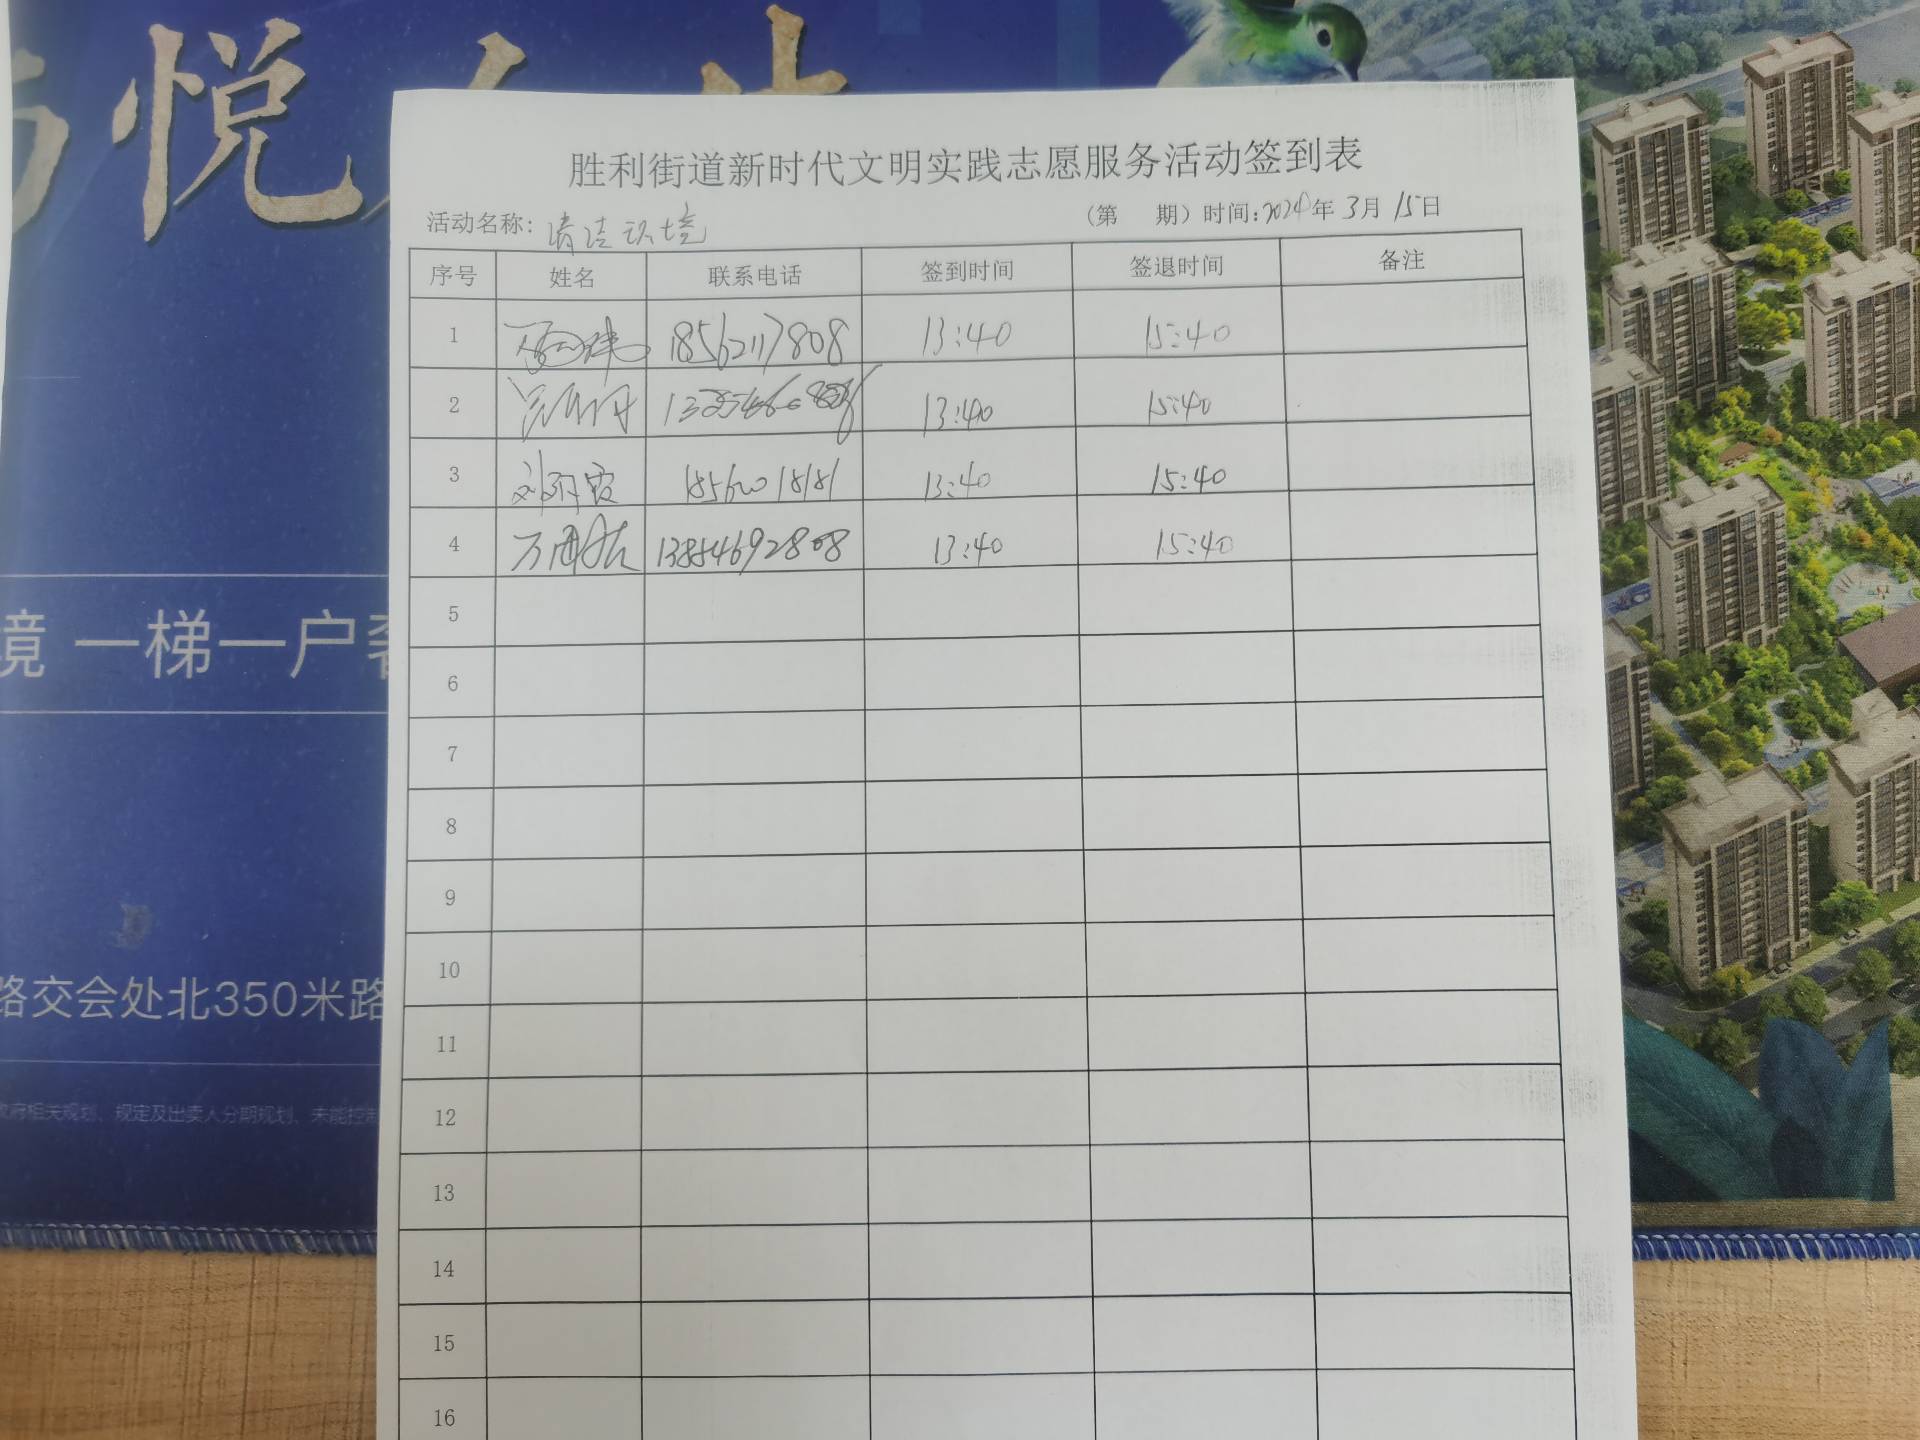 悦
境 一梯一户
路交会处北350米路
政府相关规划、规定及出卖人分期规划、未能控制
胜利街道新时代文明实践志愿服务活动签到表
活动名称: 清洁环境 (第 期) 时间:2024年 3月 15日
序号 姓名 联系电话 签到时间 签退时间 备注
1 18562117808 13:40 15:40
2 13:40 15:40
3 刘 霞 18560018181 13:40 15:40
4 万 13854692808 13:40 15:40
5
6
7
8
9
10
11
12
13
14
15
16